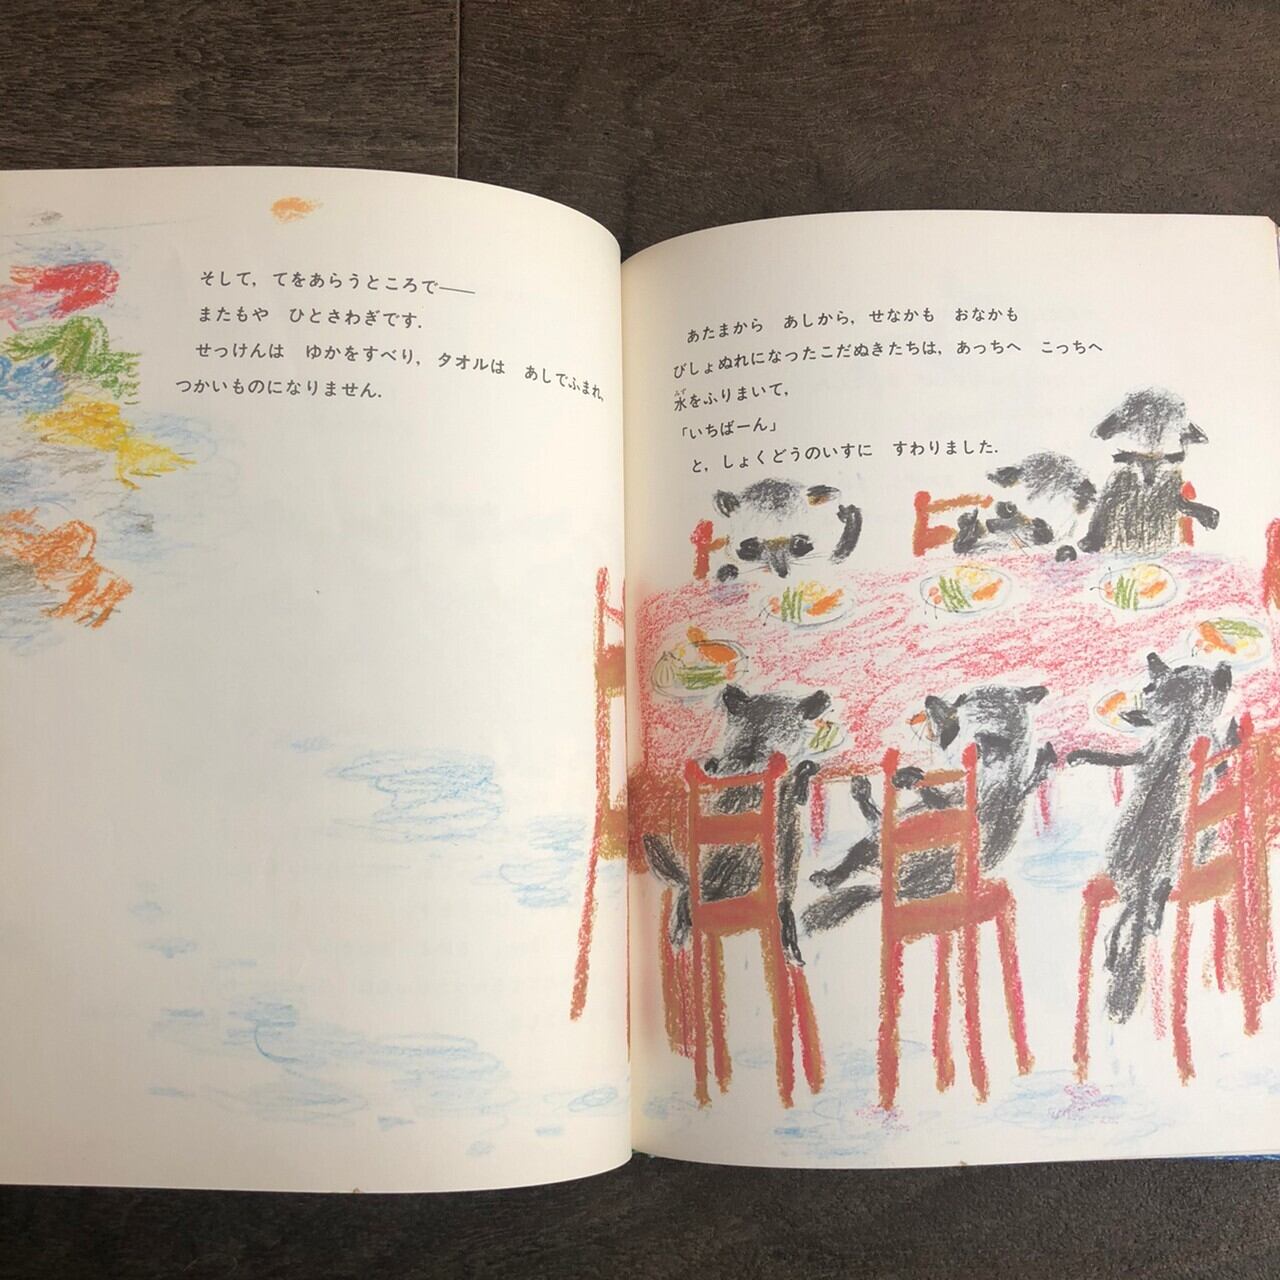 そして，てをあらうところで――
またもや　ひとさわぎです．
せっけんは　ゆかをすべり，タオルは　あしでふまれ，
つかいものになりません．
あたまから　あしから，せなかも　おなかも
びしょぬれになったこだぬきたちは，あっちへ　こっちへ
水をふりまいて，
「いちばーん」
と，しょくどうのいすに　すわりました．